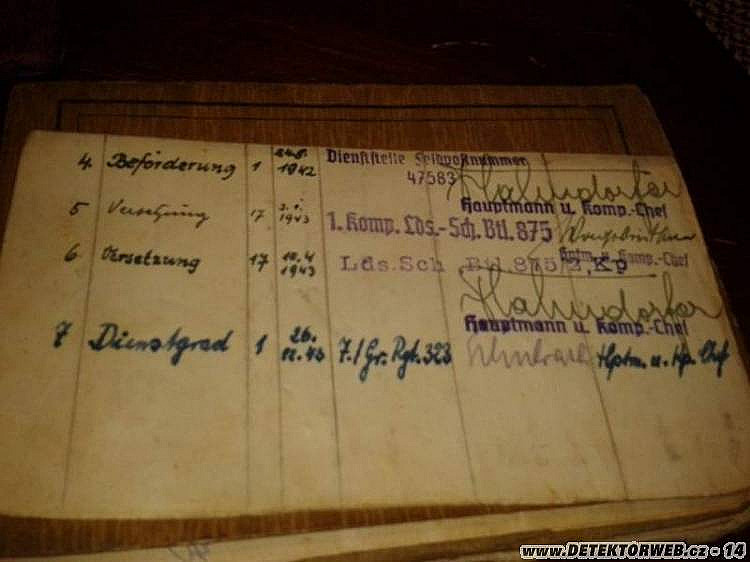 4. Beförderung 1 24.8. 1942 Dienststelle Feldpostnummer
47583
Hauptmann u. Komp.-Chef
5 Versetzung 17 3.1. 1943 1. Komp. Lds.-Sch. Btl. 875
Hptm. u. Komp.-Chef
6 Versetzung 17 10.4 1943 Lds.Sch Btl.875/2.Kp
Hauptmann u. Komp.-Chef
7 Dienstgrad 1 26. 12.43 7./Gr. Rgt. 323 Hptm. u. Kp. Chef
www.DETEKTORWEB.cz - 14